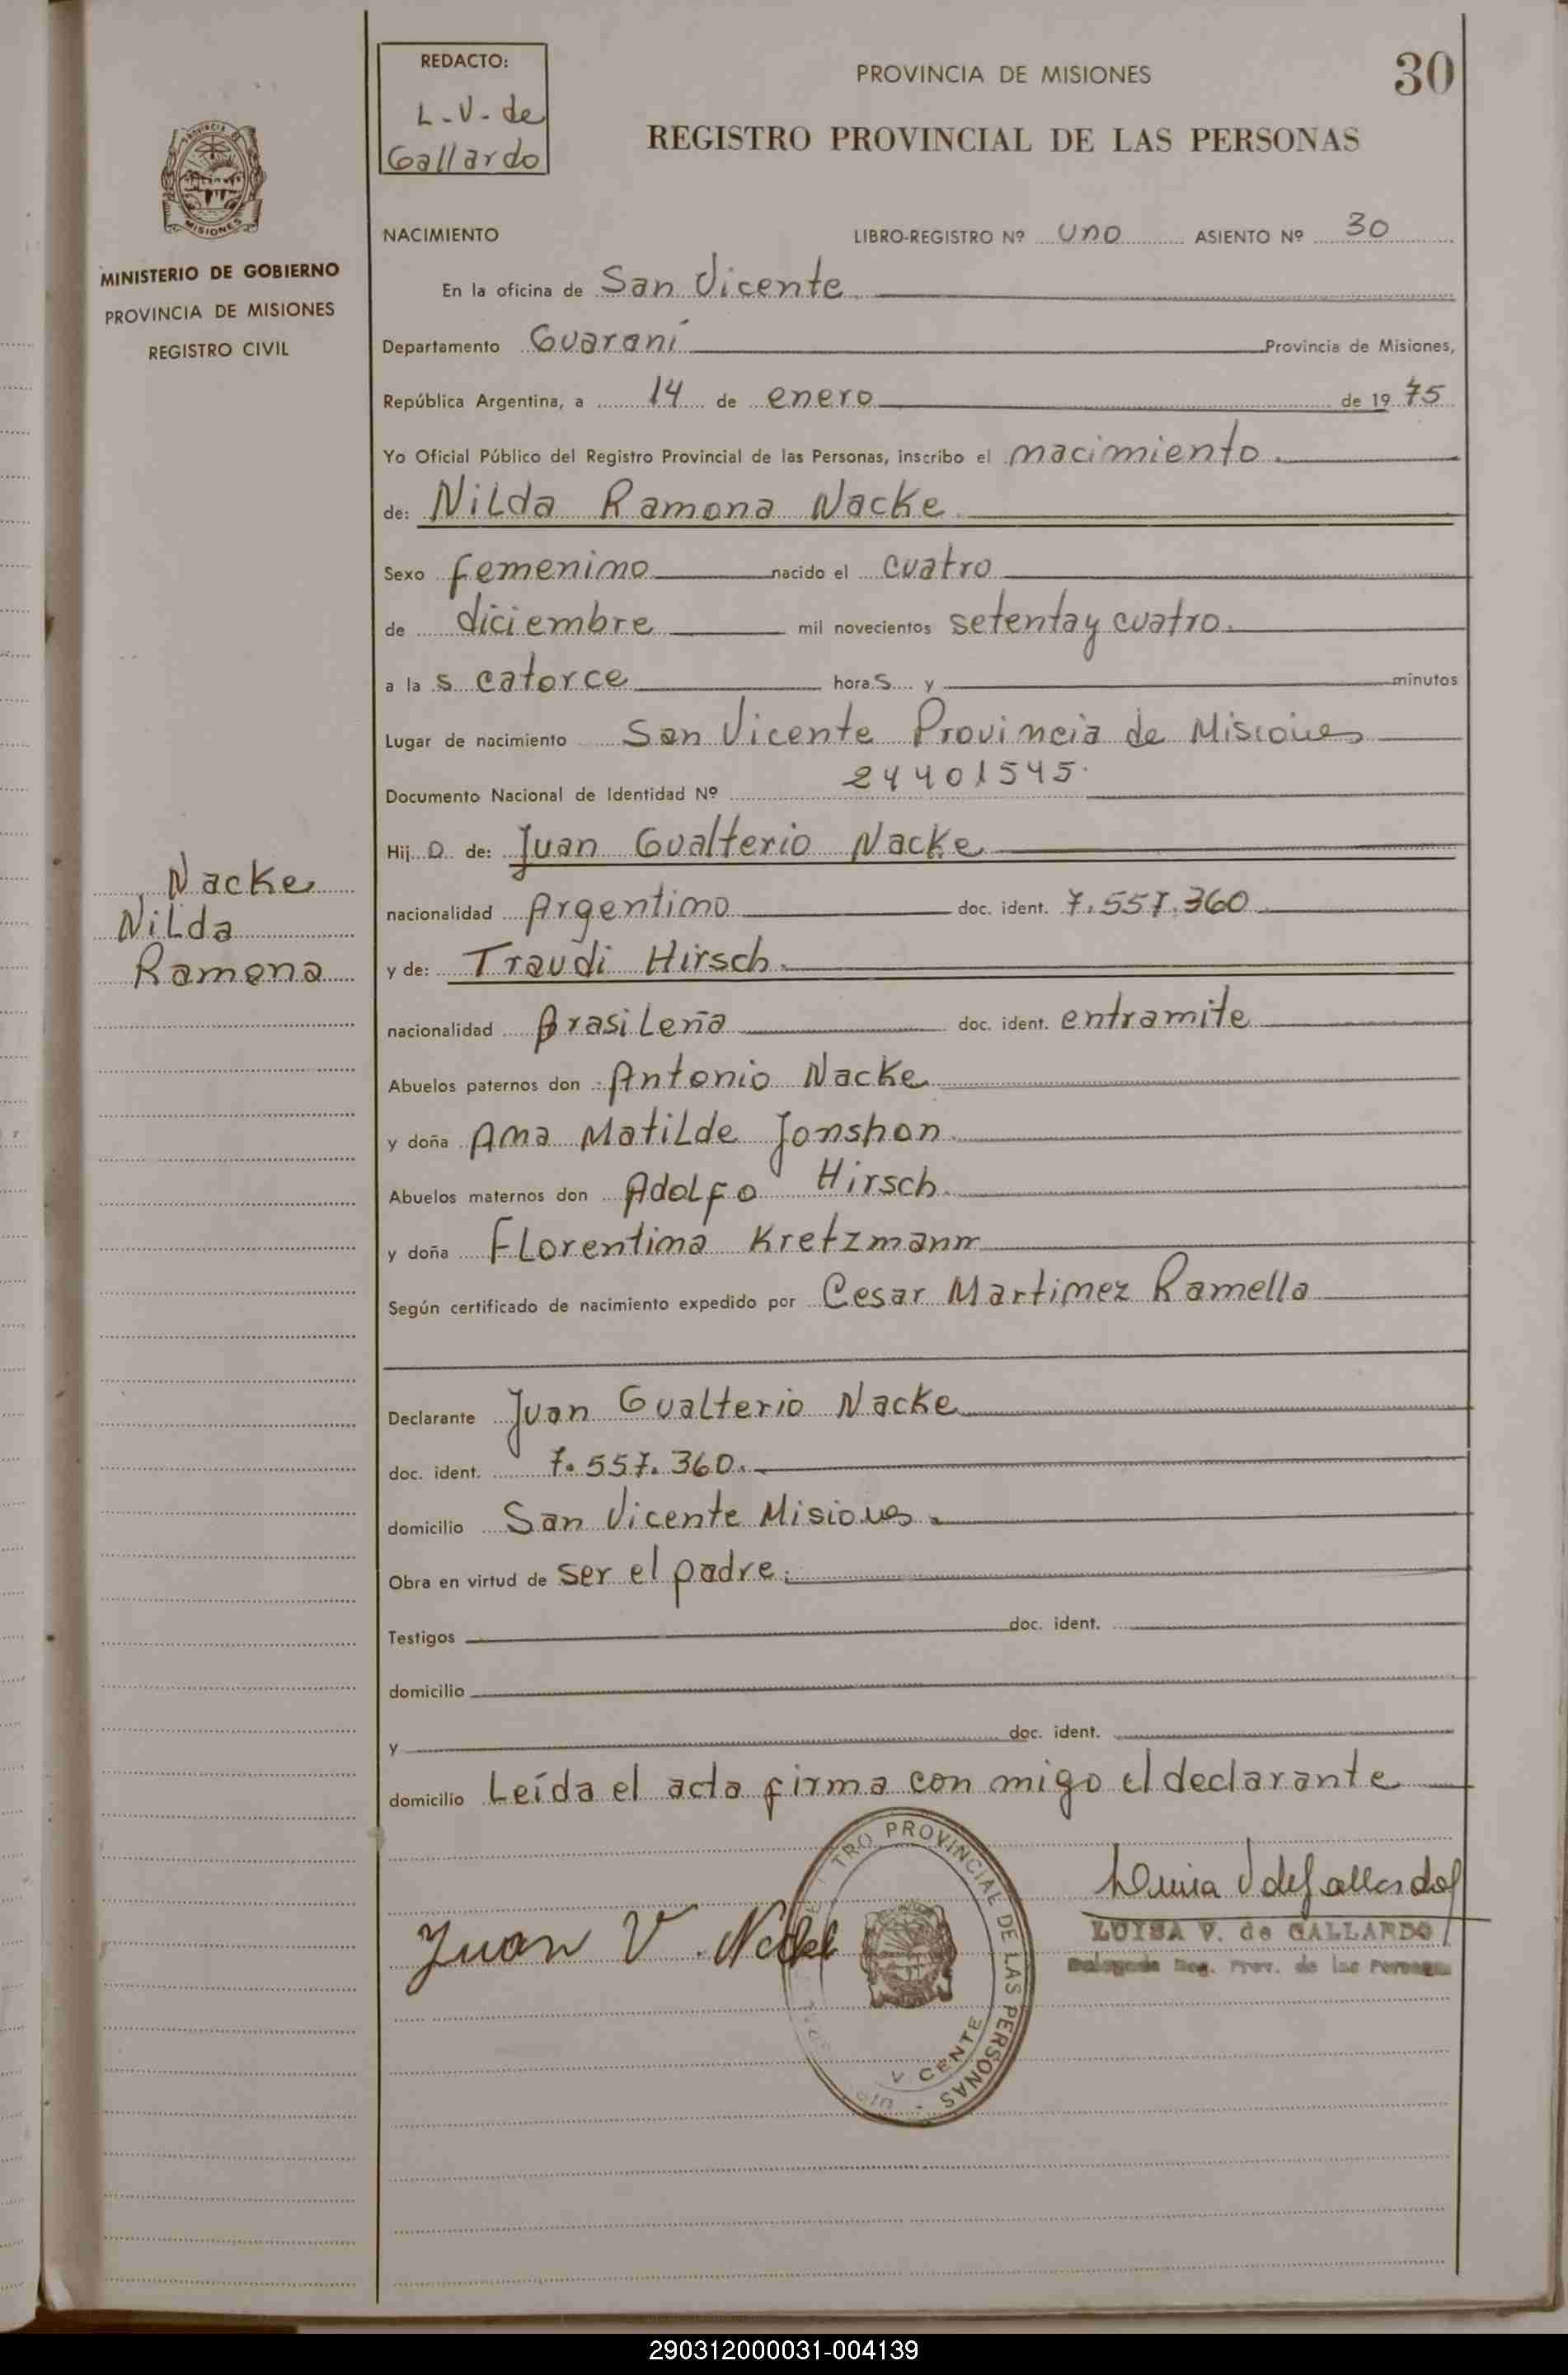 REDACTO:
L-V-de
Gallardo
PROVINCIA DE MISIONES
30
REGISTRO PROVINCIAL DE LAS PERSONAS
PROVINCIA DE
MISIONES
MINISTERIO DE GOBIERNO
PROVINCIA DE MISIONES
REGISTRO CIVIL
NACIMIENTO LIBRO-REGISTRO Nº uno ASIENTO Nº 30
En la oficina de San Vicente
Departamento Guaraní Provincia de Misiones,
República Argentina, a 14 de enero de 1975
Yo Oficial Público del Registro Provincial de las Personas, inscribo el nacimiento.
de: Nilda Ramona Nacke
Sexo femenino nacido el cuatro
de diciembre mil novecientos setenta y cuatro.
a la s catorce hora s y minutos
Lugar de nacimiento San Vicente Provincia de Misiones
Documento Nacional de Identidad Nº 24401545.
Hij a de: Juan Gualterio Nacke
nacionalidad Argentino doc. ident. 7.557.360
y de: Traudi Hirsch.
nacionalidad Brasileña doc. ident. entramite
Abuelos paternos don Antonio Nacke
y doña Ana Matilde Jonshon
Abuelos maternos don Adolfo Hirsch.
y doña Florentina Kretzmann
Según certificado de nacimiento expedido por Cesar Martinez Ramella
Declarante Juan Gualterio Nacke
doc. ident. 7.557.360.
domicilio San Vicente Misiones.
Obra en virtud de ser el padre.
Testigos doc. ident.
domicilio
y doc. ident.
domicilio Leída el acta firma con migo el declarante
Nacke
Nilda
Ramona
Juan V.
TRO PROVINCIAL DE LAS PERSONAS
V CENTE
LUISA V. de GALLARDO
Reg. Prov. de las Personas
290312000031-004139